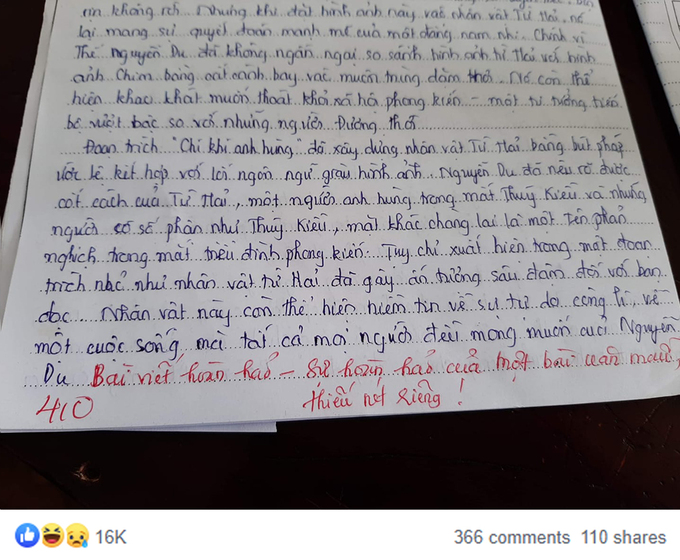 em không rời. Nhưng khi đặt hình ảnh này vào nhân vật Từ Hải, nó
lại mang sự quyết đoán mạnh mẽ của một đấng nam nhi. Chính vì
Thế Nguyễn Du đã không ngần ngại so sánh hình ảnh Từ Hải với hình
ảnh Chim bằng cất cánh bay vào muôn trùng dặm khơi. Nó còn thể
hiện khao khát muốn thoát khỏi xã hội phong kiến - một tư tưởng tiến
bộ vượt bậc so với những người Đương thời.
Đoạn trích "Chí khí anh hùng" đã xây dựng nhân vật Từ Hải bằng bút pháp
ước lệ kết hợp với lời ngôn ngữ giàu hình ảnh. Nguyễn Du đã nêu rõ được
cốt cách của Từ Hải, một người anh hùng trong mắt Thúy Kiều và những
người có số phận như Thúy Kiều, mặt khác chàng lại là một tên phản
nghịch trong mắt triều đình phong kiến. Tuy chỉ xuất hiện trong một đoạn
trích nhỏ như nhân vật từ Hải đã gây ấn tượng sâu đậm đối với bạn
đọc. Nhân vật này còn thể hiện niềm tin về sự tự do công lí, về
một cuộc sống mà tất cả mọi người đều mong muốn của Nguyễn
Du Bài viết hoàn hảo - Sự hoàn hảo của một bài văn mẫu,
410 thiếu nét riêng!
16K 366 comments 110 shares